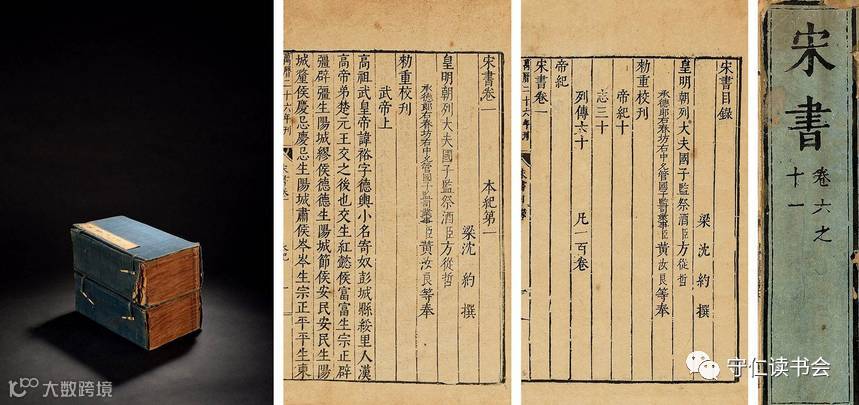 宋書卷一 本紀第一
梁沈約撰
皇明朝列大夫國子監祭酒臣方從哲
承德郎右春坊右中允管國子監司業事臣黃汝良等奉
勅重校刊
武帝上
高祖武皇帝諱裕字德輿小名寄奴彭城縣綏里人漢
高帝弟楚元王交之後也交生紅懿侯富富生宗正辟
彊辟彊生陽城繆侯德德生陽城節侯安民安民生陽
城釐侯慶忌慶忌生陽城肅侯岑岑生宗正平平生東
萬曆二十六年刊 宋書卷一
宋書目錄
梁沈約撰
皇明朝列大夫國子監祭酒臣方從哲
承德郎右春坊右中允管國子監司業事臣黃汝良等奉
勅重校刊
帝紀十
志三十
列傳六十 凡一百卷
帝紀
宋書卷一
萬曆二十六年刊 宋書目錄
宋書
卷六之
十一
守仁读书会
大数跨境